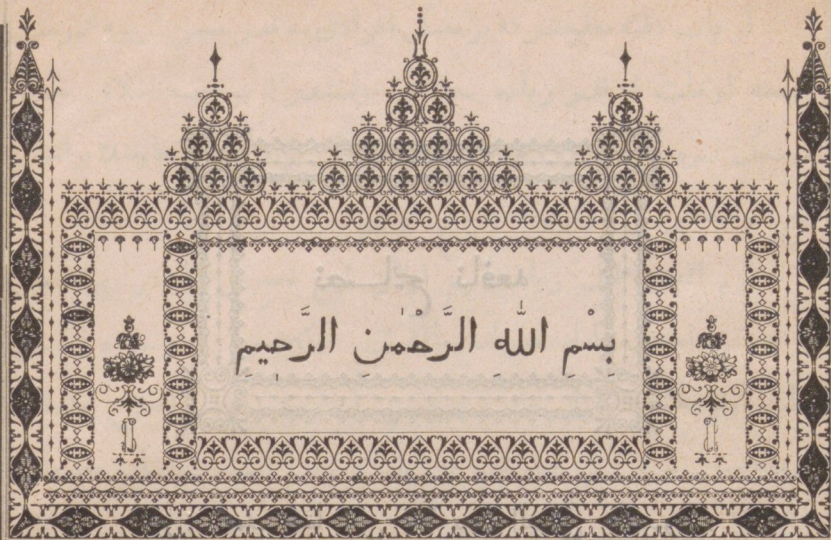 بِسْمِ اللّٰهِ الرَّحْمٰنِ الرَّحيمِ